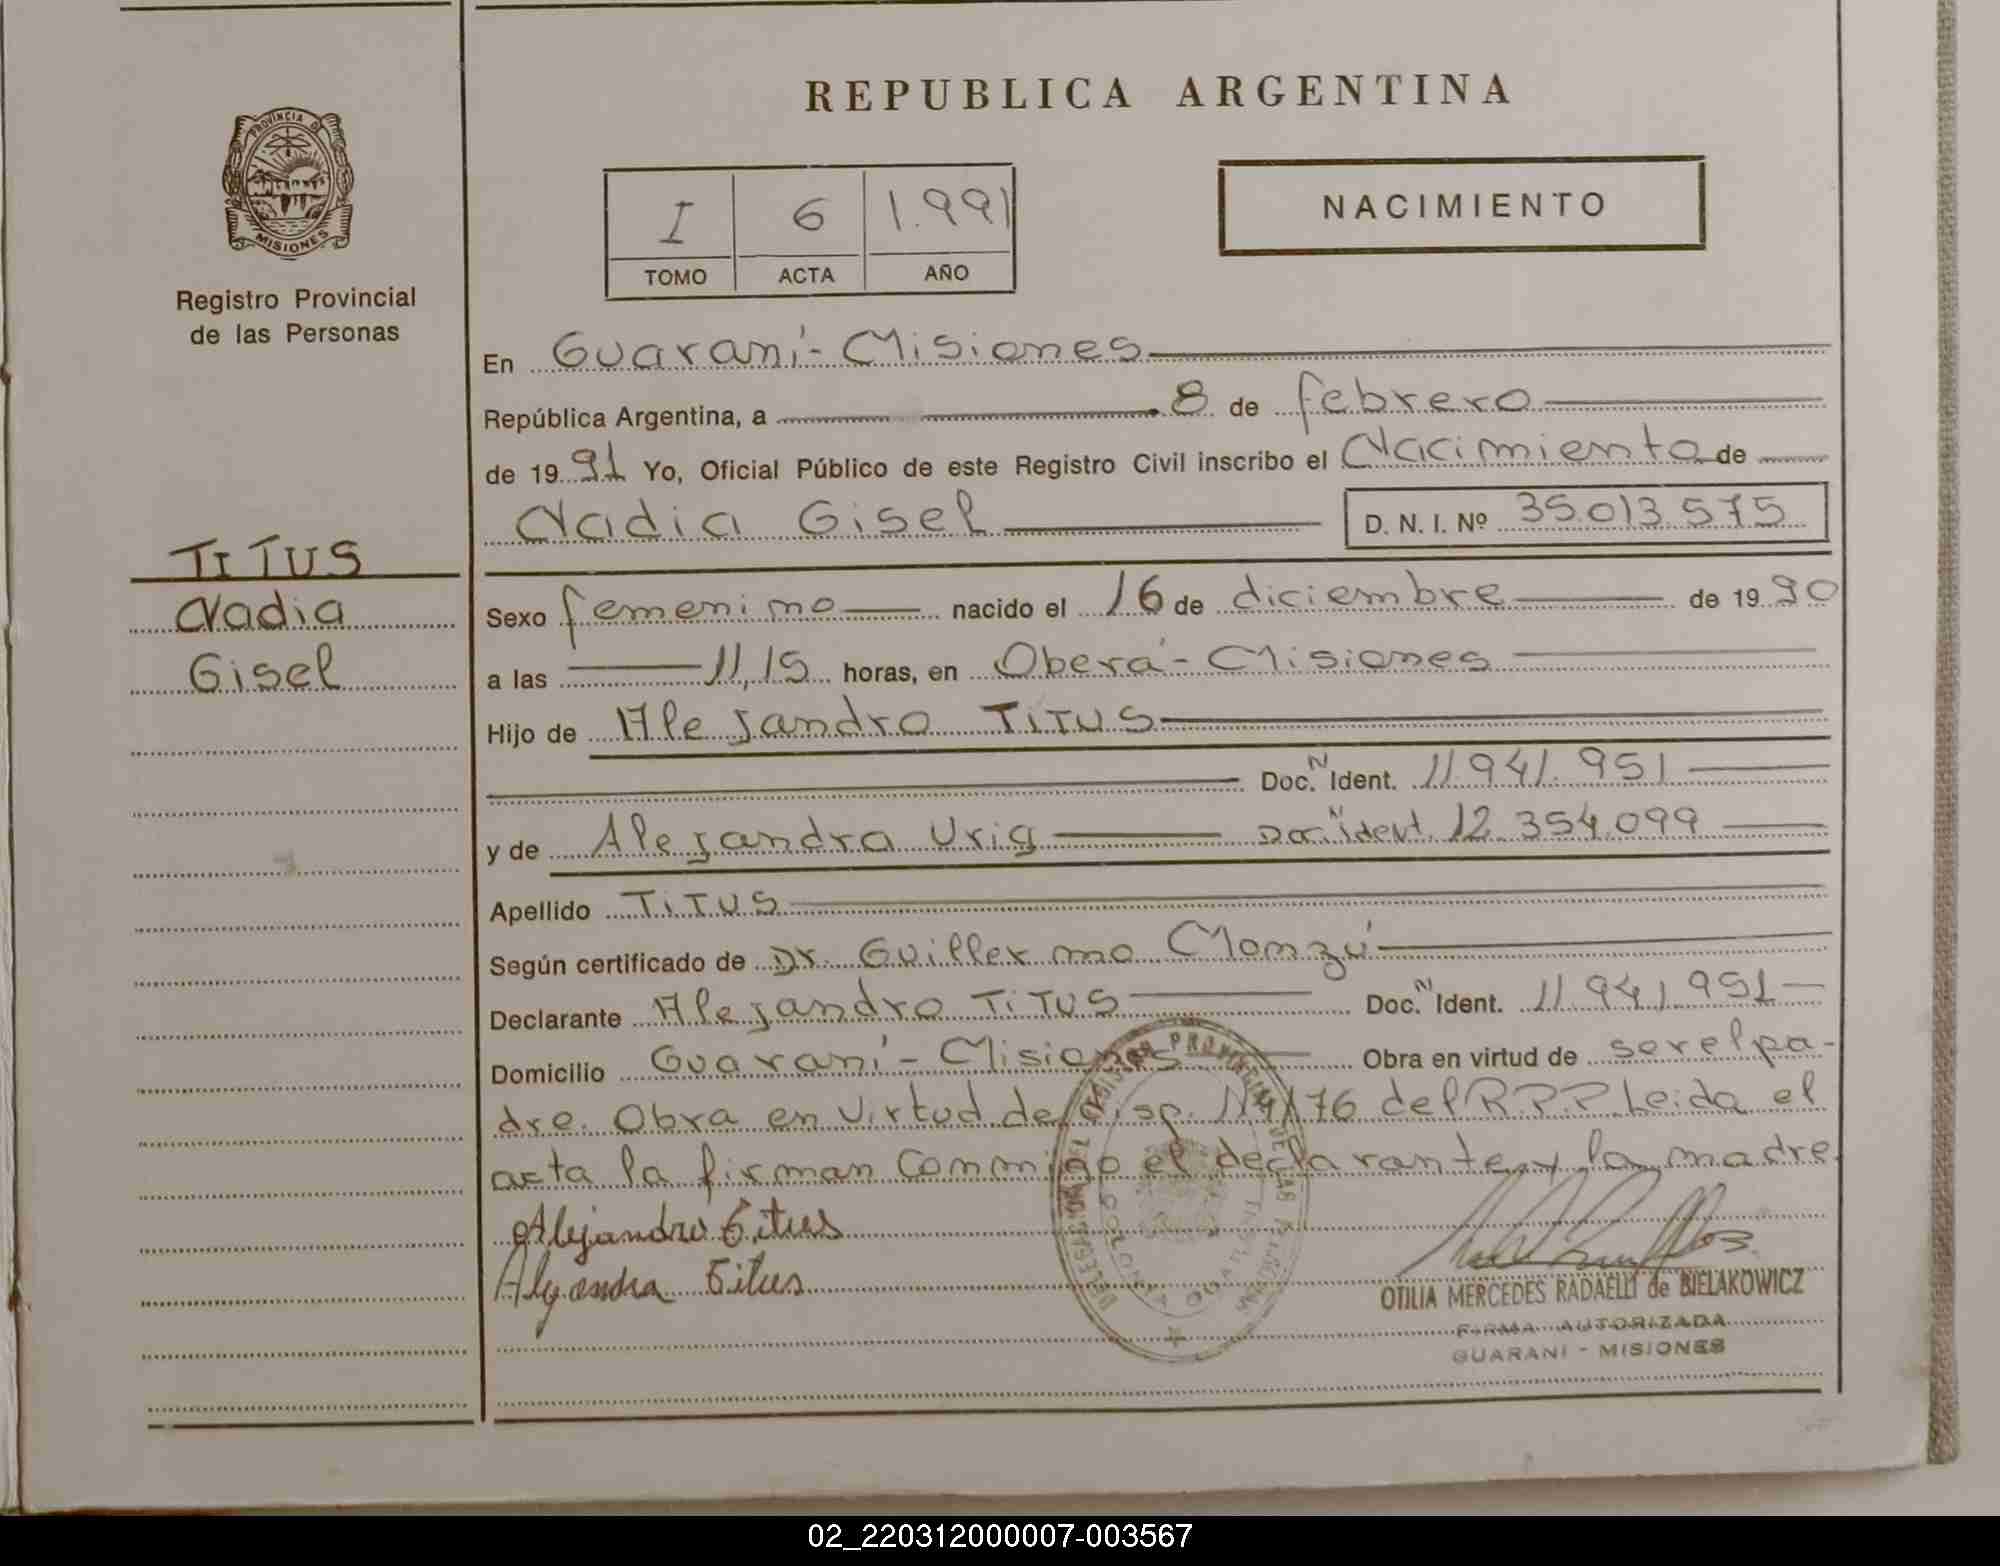 REPUBLICA ARGENTINA
PROVINCIA DE
MISIONES
Registro Provincial
de las Personas
I 6 1.991
TOMO ACTA AÑO
NACIMIENTO
TITUS
Nadia
Gisel
En Guaraní - Misiones
República Argentina, a 8 de febrero
de 19 91 Yo, Oficial Público de este Registro Civil inscribo el Nacimiento de
Nadia Gisel D. N. I. Nº 35.013.575
Sexo femenino nacido el 16 de diciembre de 19 90
a las 11,15 horas, en Oberá - Misiones
Hijo de Alejandro TITUS
Doc. N Ident. 11.941.951
y de Alejandra Urig Doc. N Ident. 12.354.099
Apellido TITUS
Según certificado de Dr. Guillermo Monzú
Declarante Alejandro TITUS Doc. N Ident. 11.941.951
Domicilio Guaraní - Misiones Obra en virtud de ser el pa-
dre. Obra en virtud de Disp. 114/76 del R.P.P Leida el
acta la firman conmigo el declarante y la madre.
Alejandro Titus
Alejandra Titus
OTILIA MERCEDES RADAELLI de BIELAKOWICZ
FIRMA AUTORIZADA
GUARANI - MISIONES
02_220312000007-003567